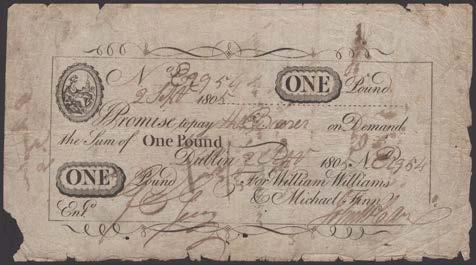 No E2954 ONE Pound
2 Sept 1804
I Promise to pay the Bearer on Demand
the Sum of One Pound
Dublin 2 Sept 1804 No E2954
ONE Pound For William Williams
Entd & Michael Finn